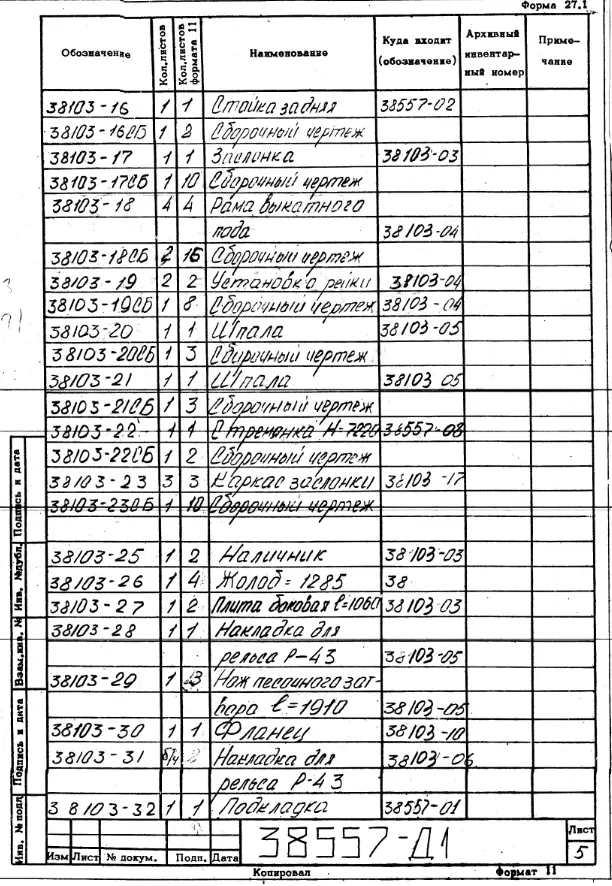 Форма 27.1
Обозначение Кол.листов Кол.листов формата 11 Наименование Куда входит (обозначение) Архивный инвентарный номер Примечание
38103-16 1 1 Стойка задняя 38557-02
38103-16СБ 1 2 Сборочный чертеж
38103-17 1 1 Заслонка 38103-03
38103-17СБ 1 10 Сборочный чертеж
38103-18 4 4 Рама выкатного
пода 38103-04
38103-18СБ 2 15 Сборочный чертеж
38103-19 2 2 Установка рейки 38103-04
38103-19СБ 1 8 Сборочный чертеж 38103-04
38103-20 1 1 Шпала 38103-05
38103-20СБ 1 3 Сборочный чертеж
38103-21 1 1 Шпала 38103 05
38103-21СБ 1 3 Сборочный чертеж
38103-22 1 1 Стремянка Н-7220 38557-08
38103-22СБ 1 2 Сборочный чертеж
38103-23 3 3 Каркас заслонки 38103-17
38103-23СБ 1 10 Сборочный чертеж
38103-25 1 2 Наличник 38103-03
38103-26 1 4 Желоб-1285 38
38103-27 1 2 Плита боковая ℓ=1060 38103-03
38103-28 1 1 Накладка для
рельса Р-43 38103-05
38103-29 1 3 Нож песочного зат-
вора ℓ=1910 38103-05
38103-30 1 1 Фланец 38103-10
38103-31 б/ч 2 Накладка для 38103-06
рельса Р-43
38103-32 1 1 Подкладка 38557-01
Подпись и дата
Инв. №дубл.
Взам.инв. №
Подпись и дата
Инв. № подл
Изм Лист № докум. Подп. Дата
38557-Д1
Лист
5
Копировал Формат 11